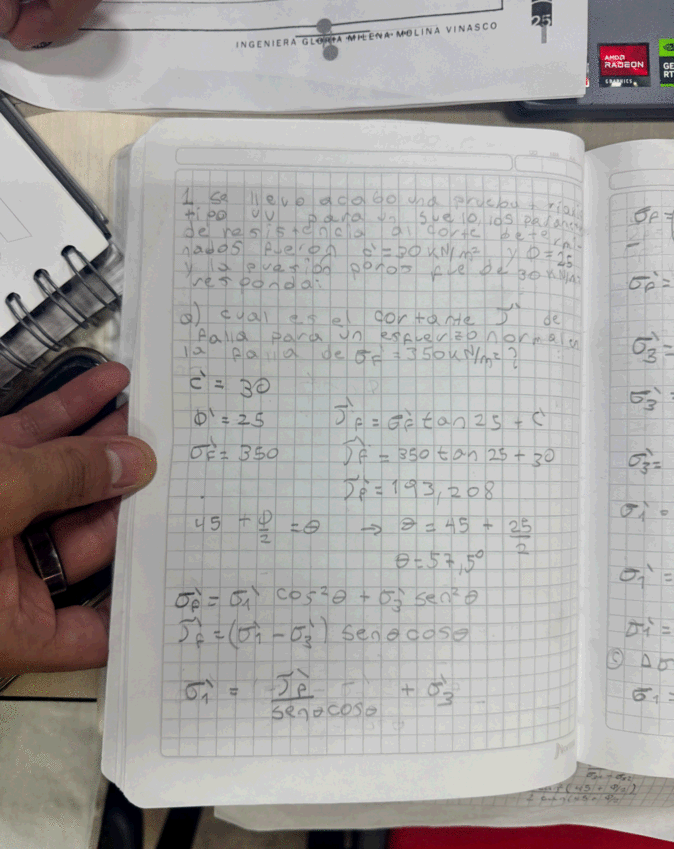 25
INGENIERA GLORIA MILENA MOLINA VINASCO
AMD
RADEON
GRAPHICS
GE
RT
1. Se llevo acabo una prueba triaxi
tipo UU para un suelo, los parame
de resistencia al corte deter
nados fueron c' = 30 KN/m² y Ø = 25
y la presión poros fue de 30 KN/m²
responda:
a) cual es el cortante J' de
falla para un esfuerzo normal en
la falla de σf' = 350 KN/m²?
c' = 30
Φ' = 25 Jf' = σf' tan 25 + c'
σf' = 350 Jf' = 350 tan 25 + 30
Jf' = 193,208
45 + φ/2 = θ → θ = 45 + 25/2
θ = 57,5°
σf' = σ1' cos²θ + σ3' sen²θ
Jf' = (σ1' - σ3') senθcosθ
σ1' = Jf'/senθcosθ + σ3'
σf =
σf' =
σ3'
σ3' =
σ3' =
σ1' =
σ1' =
σ1' =
Δσ
σ1 =